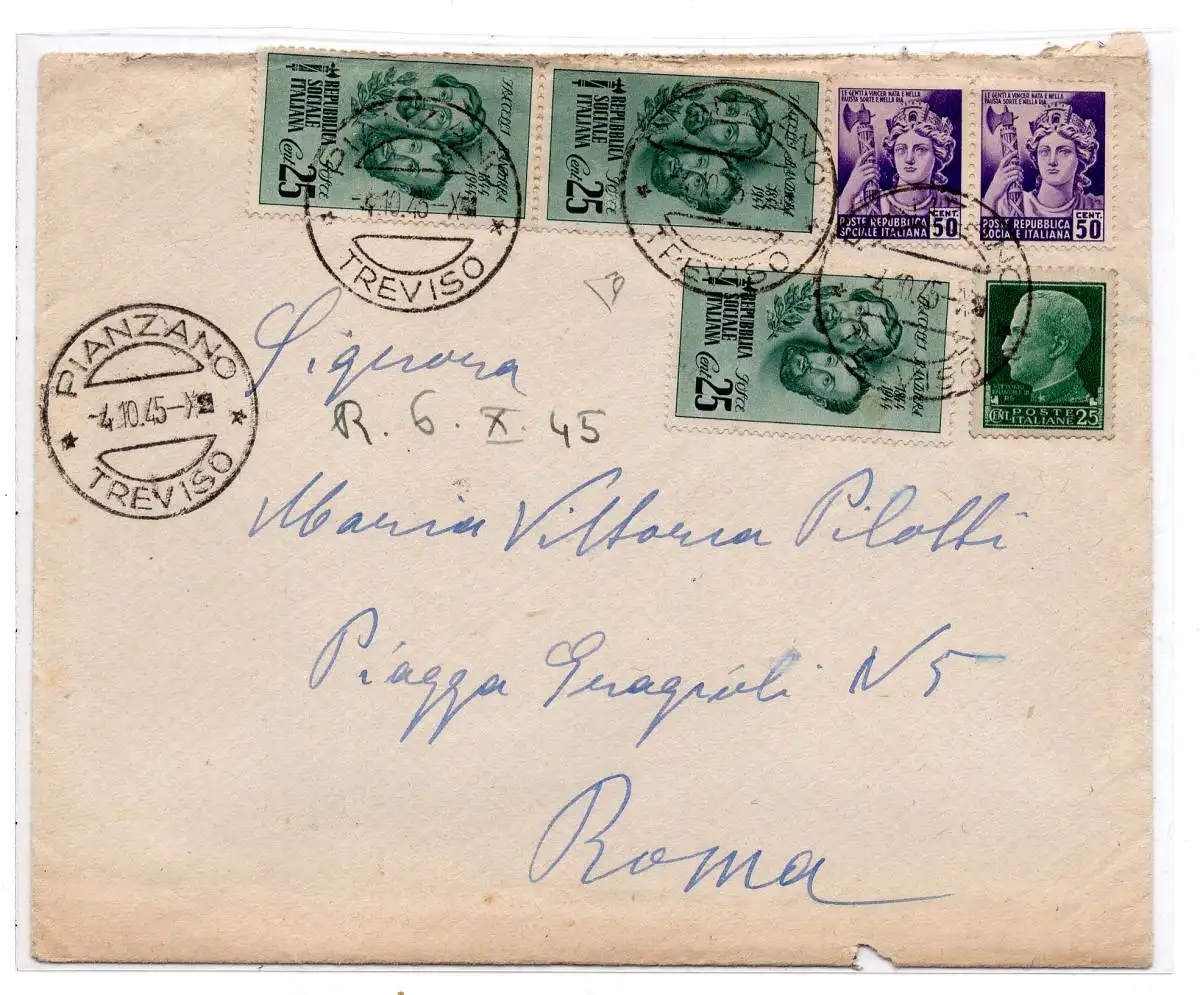 REPUBBLICA
SOCIALE
ITALIANA
Cent. 25
1844
1944
REPUBBLICA
SOCIALE
ITALIANA
Cent. 25
1844
1944
LE GENTI A VINCER NATA E NELLA
FAUSTA SORTE E NELLA RIA
CENT.
POSTE REPUBBLICA
SOCIALE ITALIANA 50
LE GENTI A VINCER NATA E NELLA
FAUSTA SORTE E NELLA RIA
CENT.
POSTE REPUBBLICA
SOCIALE ITALIANA 50
-4.10.45-X
TREVISO
TREVISO
REPUBBLICA
SOCIALE
ITALIANA
Cent. 25
1844
1944
4.10.45
CENT. POSTE
ITALIANE 25
PIANZANO
-4.10.45-X
TREVISO
Signora
R. 6. X. 45
Maria Vittoria Pilotti
Piazza N 5
Roma